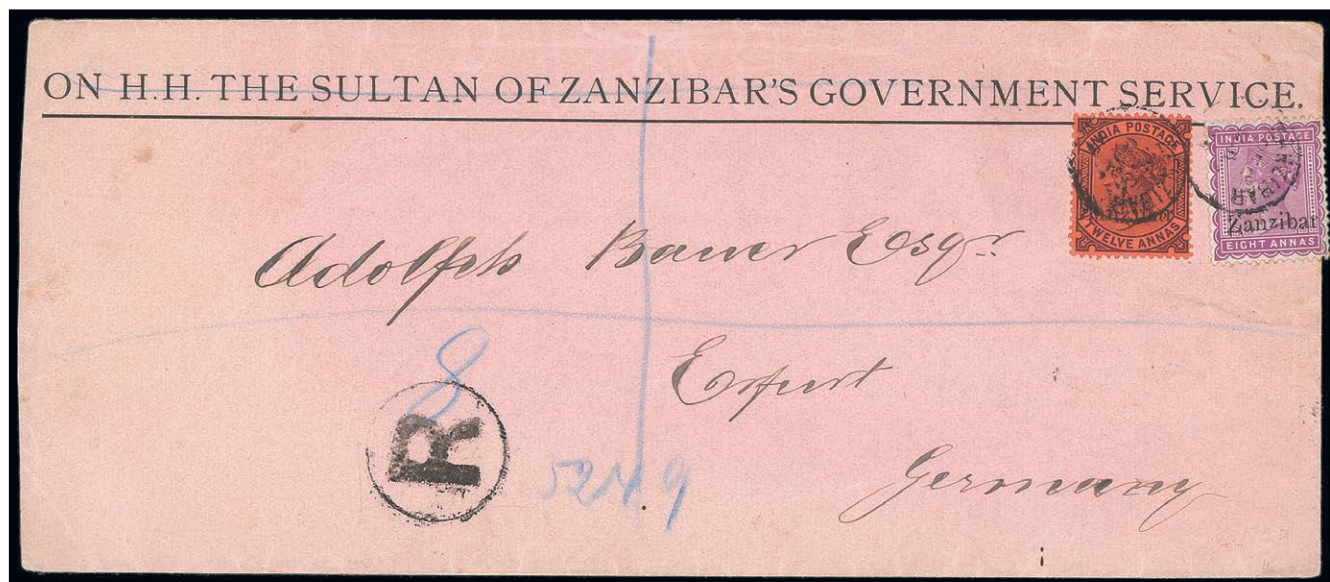 ON H.H. THE SULTAN OF ZANZIBAR'S GOVERNMENT SERVICE.
INDIA POSTAGE
TWELVE ANNAS
INDIA POSTAGE
ZANZIBAR
Zanzibar
EIGHT ANNAS
Adolph Bauer Esqr.
Erfurt
Germany
8
R